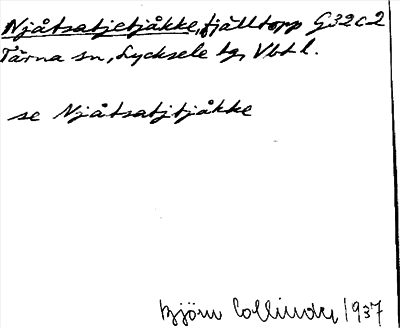 Njåtsatjetjåkke, fjälltopp G32c2
Tärna sn, Lycksele lg, Vbtl.
se Njåtsatjtjåkke
Björn Collinder 1937